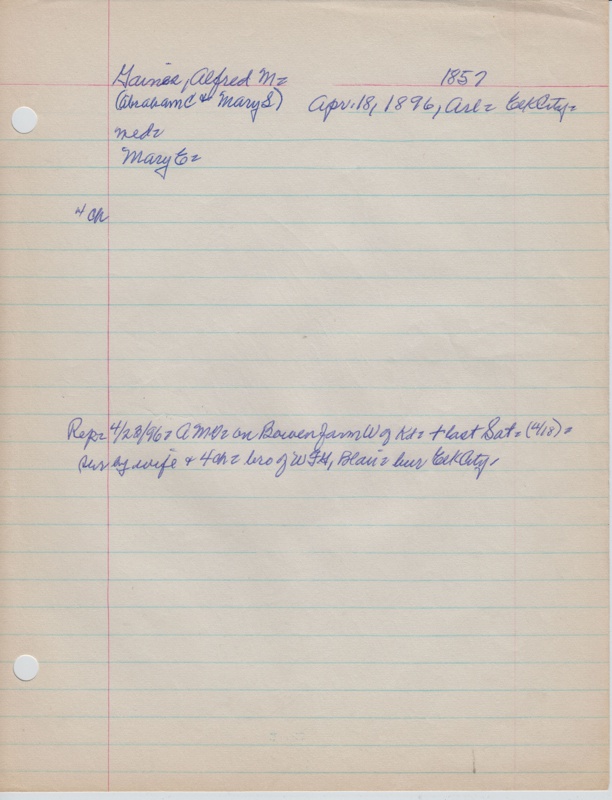 Gaines, Alfred M= 1857
(Abraham C & Mary S) Apr. 18, 1896, Arl= Elk City=
med=
Mary E=
4 ch
Rep= 4/28/96= A M G= on Bowen farm W of Kd= + last Sat= (4/18)=
sur by wife & 4 ch= bro of W F G, Blair= bur Elk City.